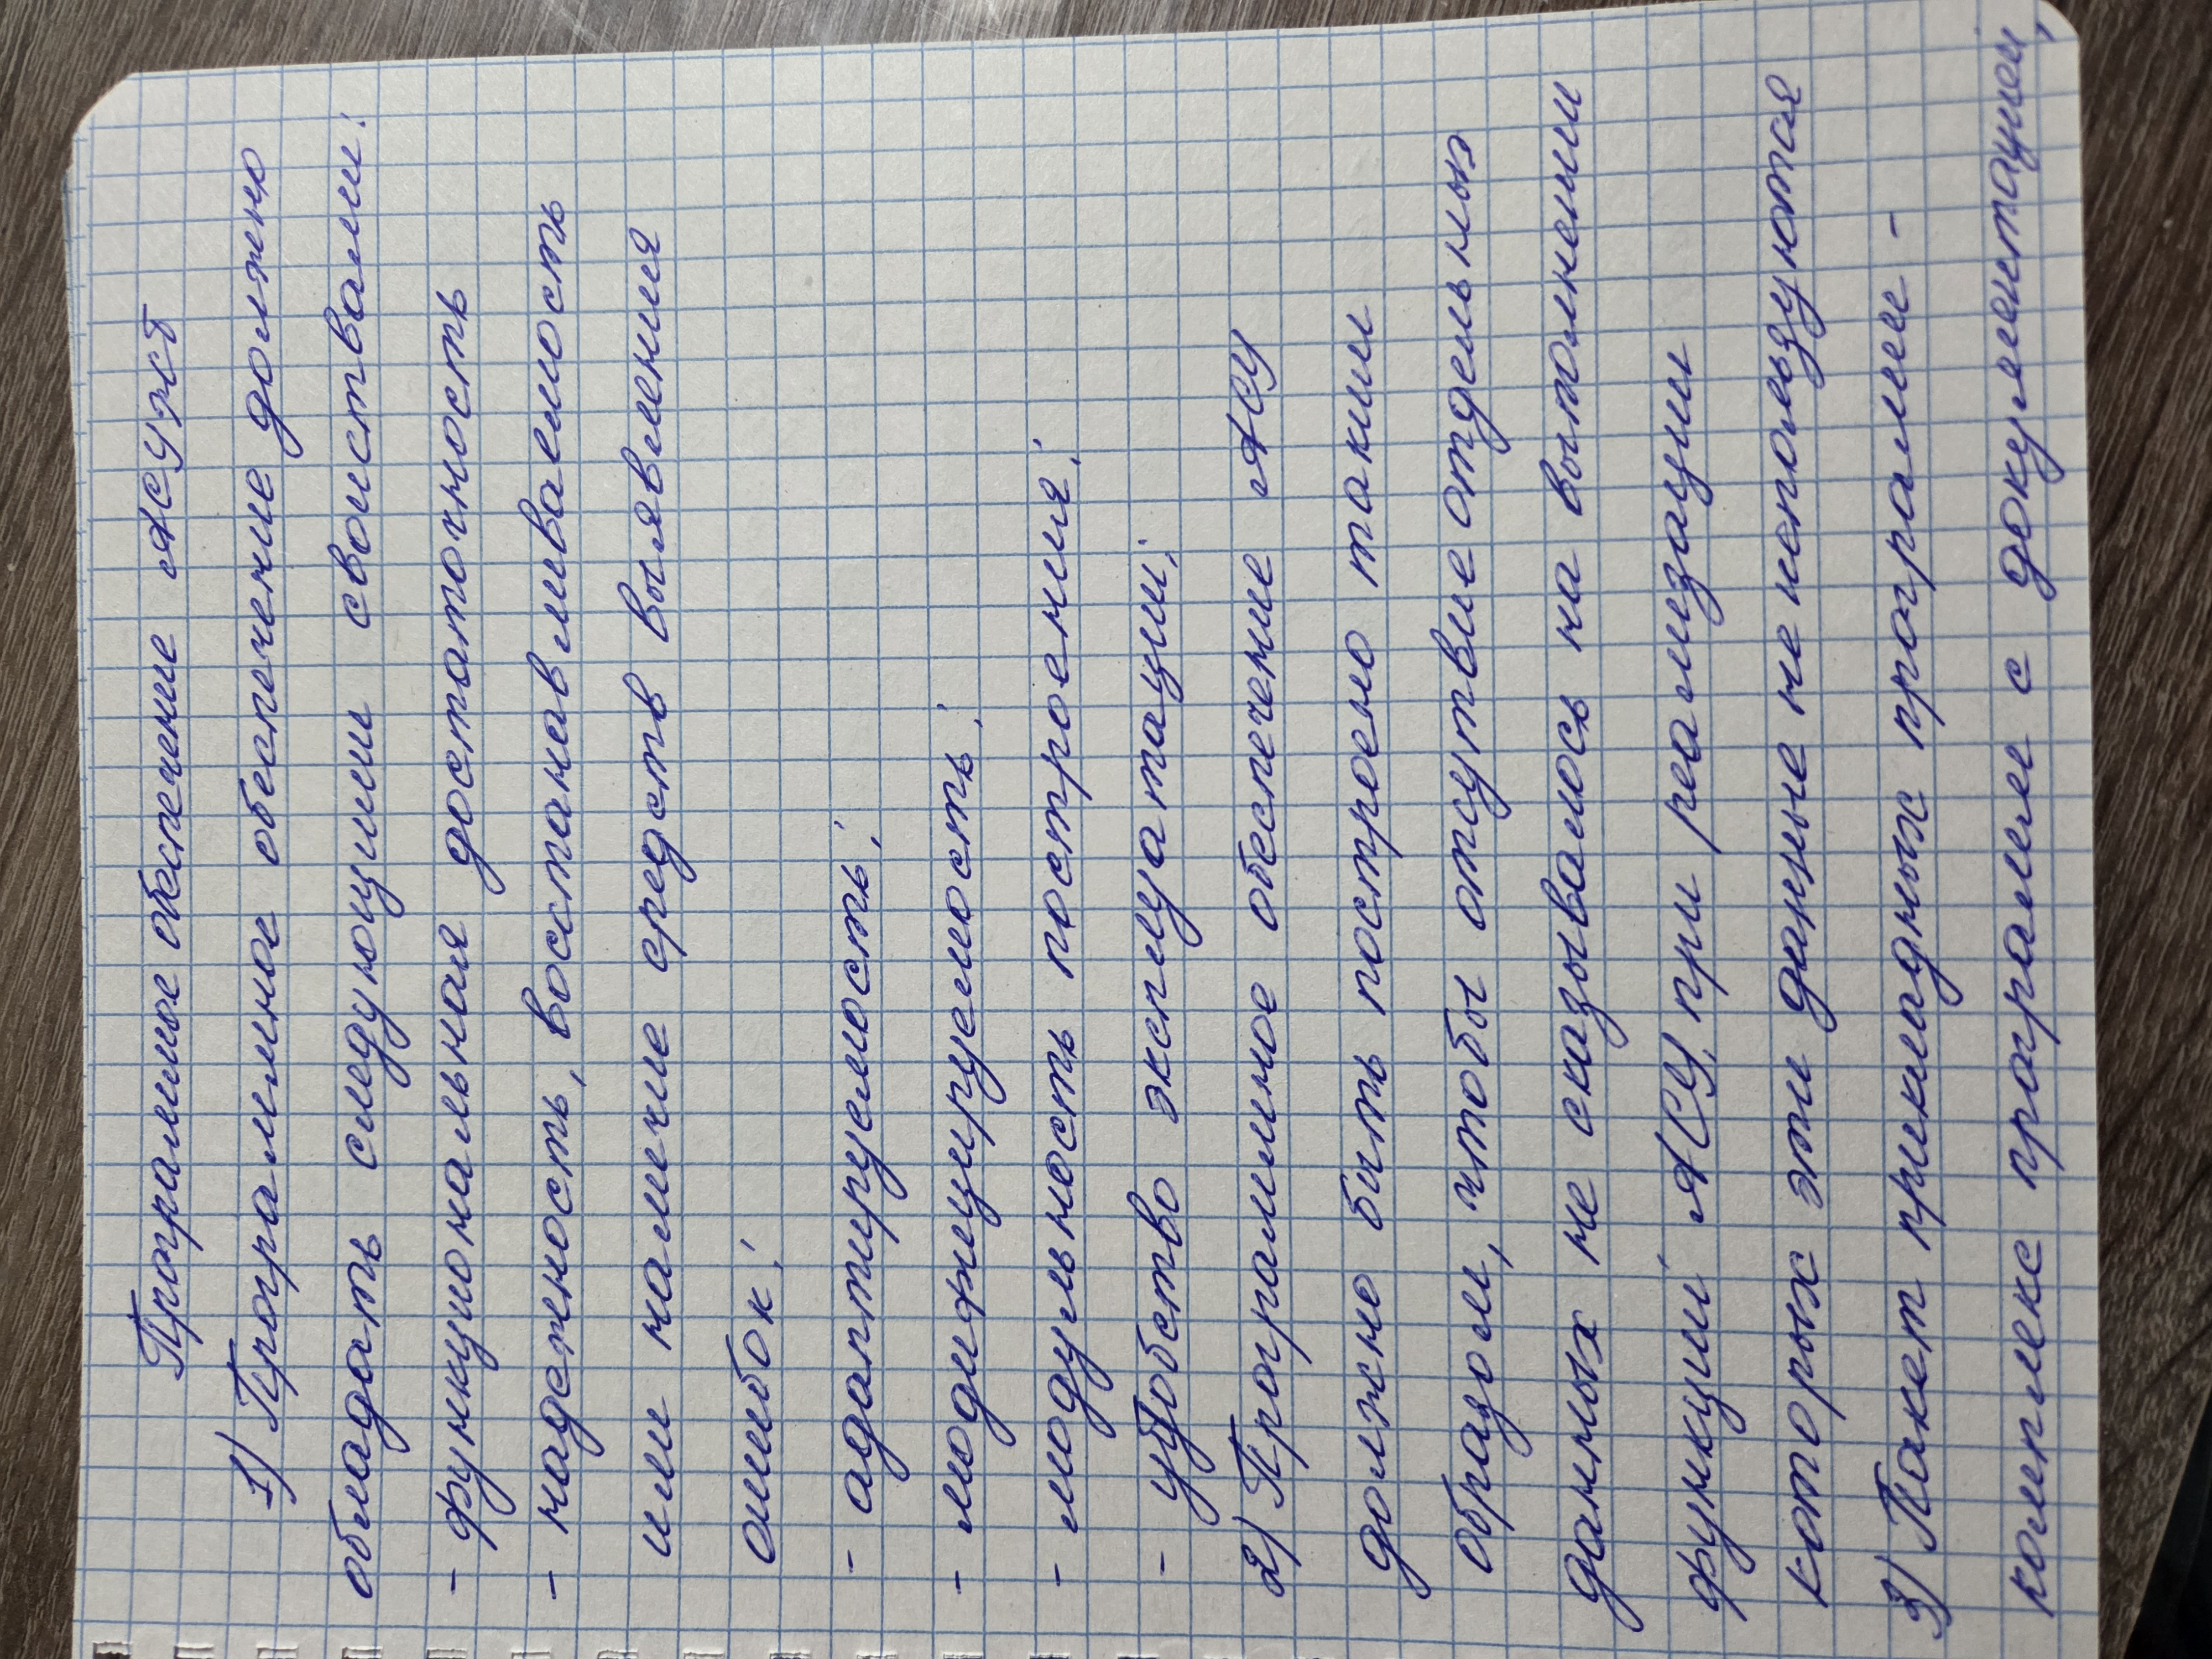 Програмное обеспечение АСУЖТ
1) Програмное обеспечение должно
обладать следующими свойствами:
- функциональная достаточность
- надежность, восстанавливаемость
или наличие средств выявления
ошибок;
- адаптируемость;
- модифицируемость;
- модульность построения;
- удобство эксплуатации;
2) Програмное обеспечение АСУ
должно быть построено таким
образом, чтобы отсутвие отдельных
данных не сказывалось на выполнении
функций АСУ, при реализации
которых эти данные не используются
3) Пакет прикладных программ -
комплекс программ с документацией,